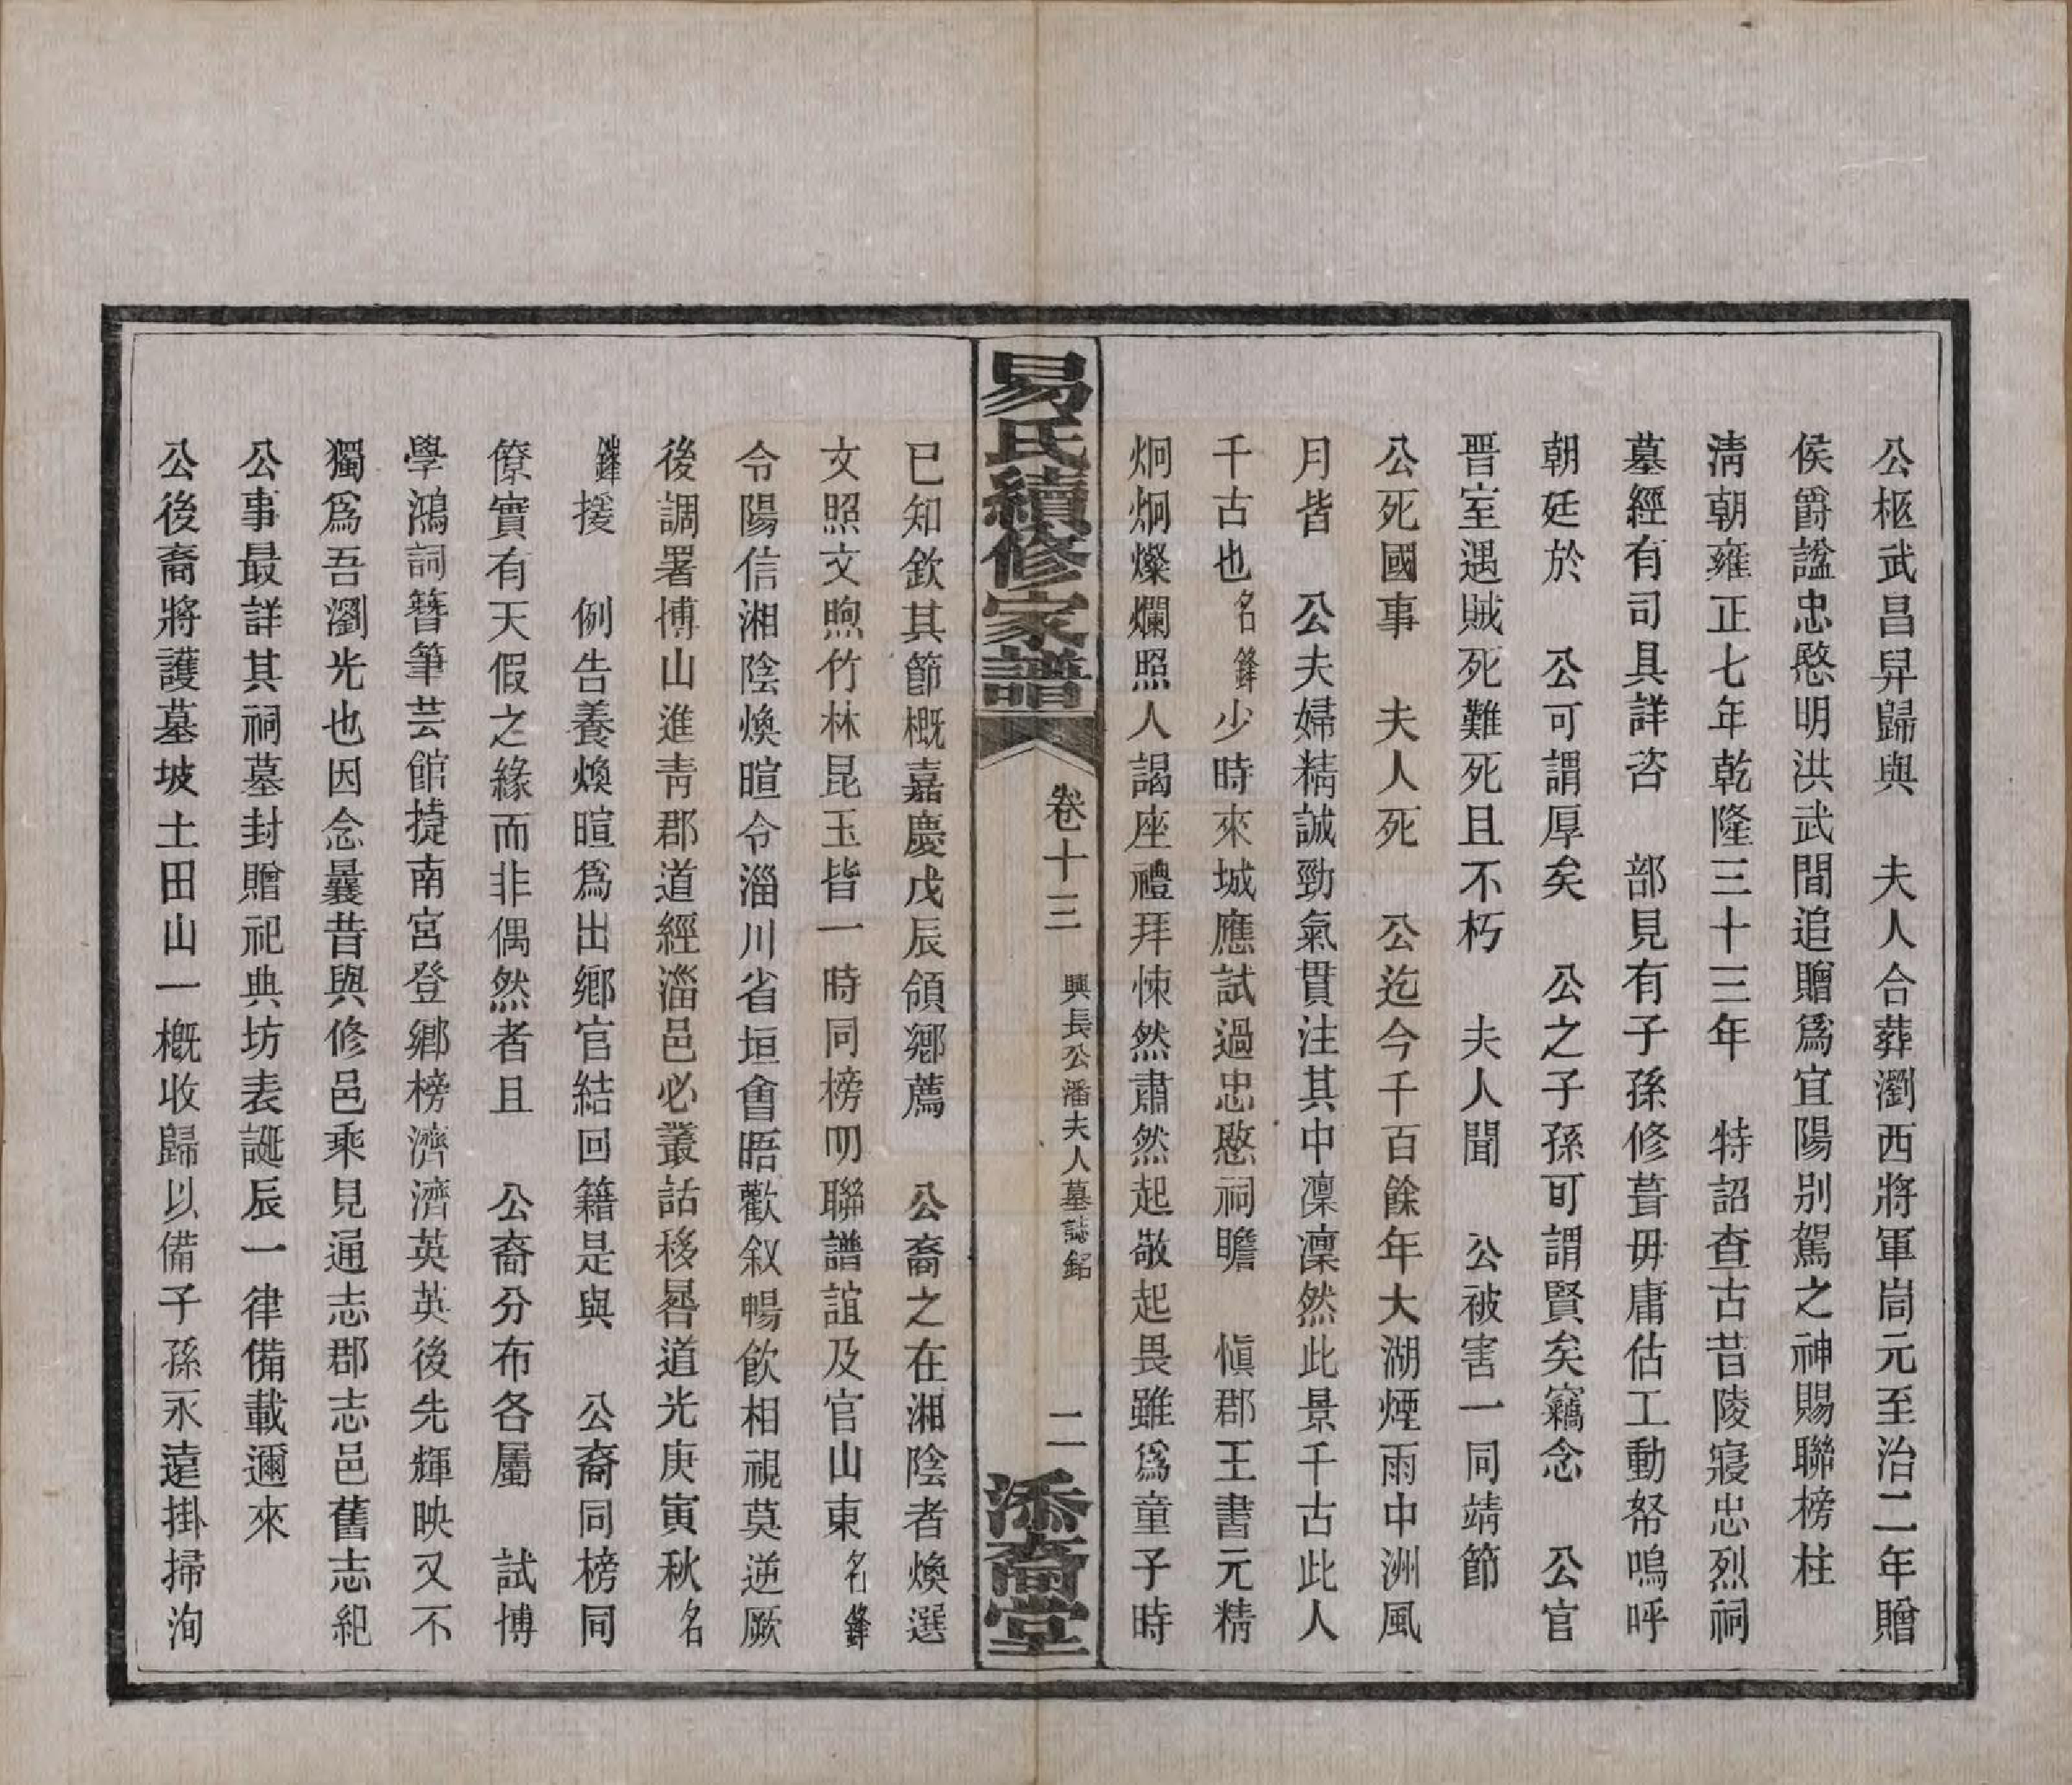 公柩武昌舁歸與　夫人合葬瀏西將軍峝元至治二年贈
侯爵諡忠愍明洪武間追贈爲宜陽别駕之神賜聯榜柱
淸朝雍正七年乾隆三十三年　特詔查古昔陵寢忠烈祠
墓經有司具詳咨　部見有子孫修葺毋庸估工動帑嗚呼
朝廷於　公可謂厚矣　公之子孫可謂賢矣竊念　公官
晋室遇賊死難死且不朽　夫人聞　公被害一同靖節
公死國事　夫人死　公迄今千百餘年大湖煙雨中洲風
月皆　公夫婦精誠勁氣貫注其中凜凜然此景千古此人
千古也名鋒少時來城應試過忠愍祠瞻　愼郡王書元精
炯炯燦爛照人謁座禮拜悚然肅然起敬起畏雖爲童子時
易氏續修家譜　卷十三　興長公潘夫人墓誌銘　二　添裔堂
已知欽其節槪嘉慶戊辰領鄕薦　公裔之在湘陰者煥選
文照文煦竹林昆玉皆一時同榜叨聯譜誼及官山東名鋒
令陽信湘陰煥暄令淄川省垣會晤歡叙暢飮相視莫逆厥
後調署博山進靑郡道經淄邑必叢話移晷道光庚寅秋名
鋒援　例告養煥暄爲出鄕官結回籍是與　公裔同榜同
僚實有天假之緣而非偶然者且　公裔分布各屬　試博
學鴻詞簪筆芸館捷南宮登鄕榜濟濟英英後先輝映又不
獨爲吾瀏光也因念曩昔與修邑乘見通志郡志邑舊志紀
公事最詳其祠墓封贈祀典坊表誕辰一律備載邇來
公後裔將護墓坡土田山一槪收歸以備子孫永遠掛掃洵